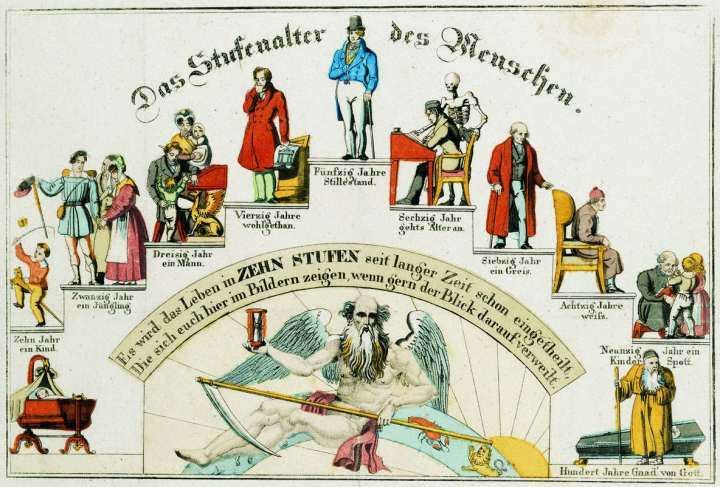 Das Stufenalter des Menschen.
Zehn Jahr
ein Kind.
Zwanzig Jahr
ein Jüngling
Dreisig Jahr
ein Mann.
Vierzig Jahre
wohlgethan.
Fünfzig Jahre
Stillestand.
Sechzig Jahr
gehts Alter an.
Siebzig Jahr
ein Greis.
Achtzig Jahre
weifs.
Neunzig Jahr ein
Kinder Spott.
Hundert Jahre Gnad von Gott.
Es wird das Leben in ZEHN STUFEN seit langer Zeit schon eingetheilt,
Die sich euch hier im Bildern zeigen, wenn gern der Blick darauf verweilt.